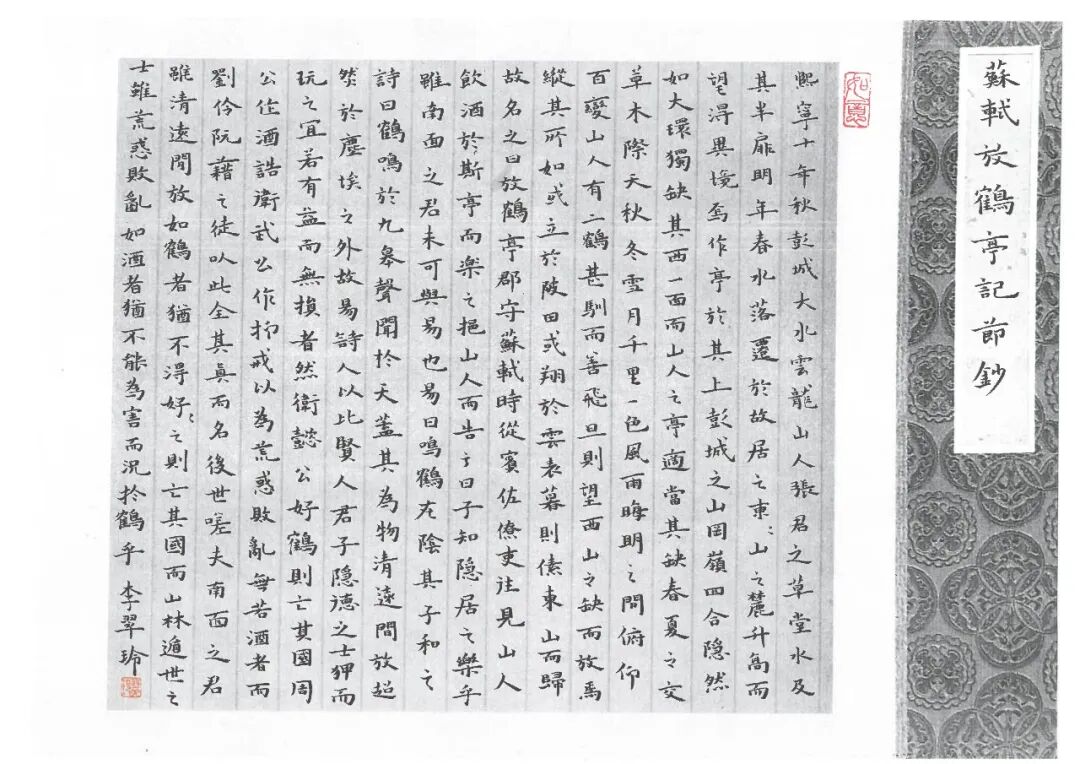 蘇軾放鶴亭記節鈔
如意
熙寧十年秋彭城大水雲龍山人張君之草堂水及
其半扉明年春水落遷於故居之東〻山之麓升高而
望得異境焉作亭於其上彭城之山岡嶺四合隱然
如大環獨缺其西一面而山人之亭適當其缺春夏之交
草木際天秋冬雪月千里一色風雨晦明之間俯仰
百變山人有二鶴甚馴而善飛旦則望西山之缺而放焉
縱其所如或立於陂田或翔於雲表暮則傃東山而歸
故名之曰放鶴亭郡守蘇軾時從賓佐僚吏往見山人
飲酒於斯亭而楽之挹山人而告之曰子知隱居之樂乎
雖南面之君未可與易也易曰鳴鶴在陰其子和之
詩曰鶴鳴於九皋聲聞於天蓋其為物清遠閒放超
然於塵埃之外故易詩人以比賢人君子隱德之士狎而
玩之宜若有益而無損者然衛懿公好鶴則亡其國周
公作酒誥衛武公作抑戒以為荒惑敗亂無若酒者而
劉伶阮藉之徒以此全其真而名後世嗟夫南面之君
雖清遠閒放如鶴者猶不得好〻之則亡其國而山林遁世之
士雖荒惑敗亂如酒者猶不能為害而況於鶴乎 李翠玲